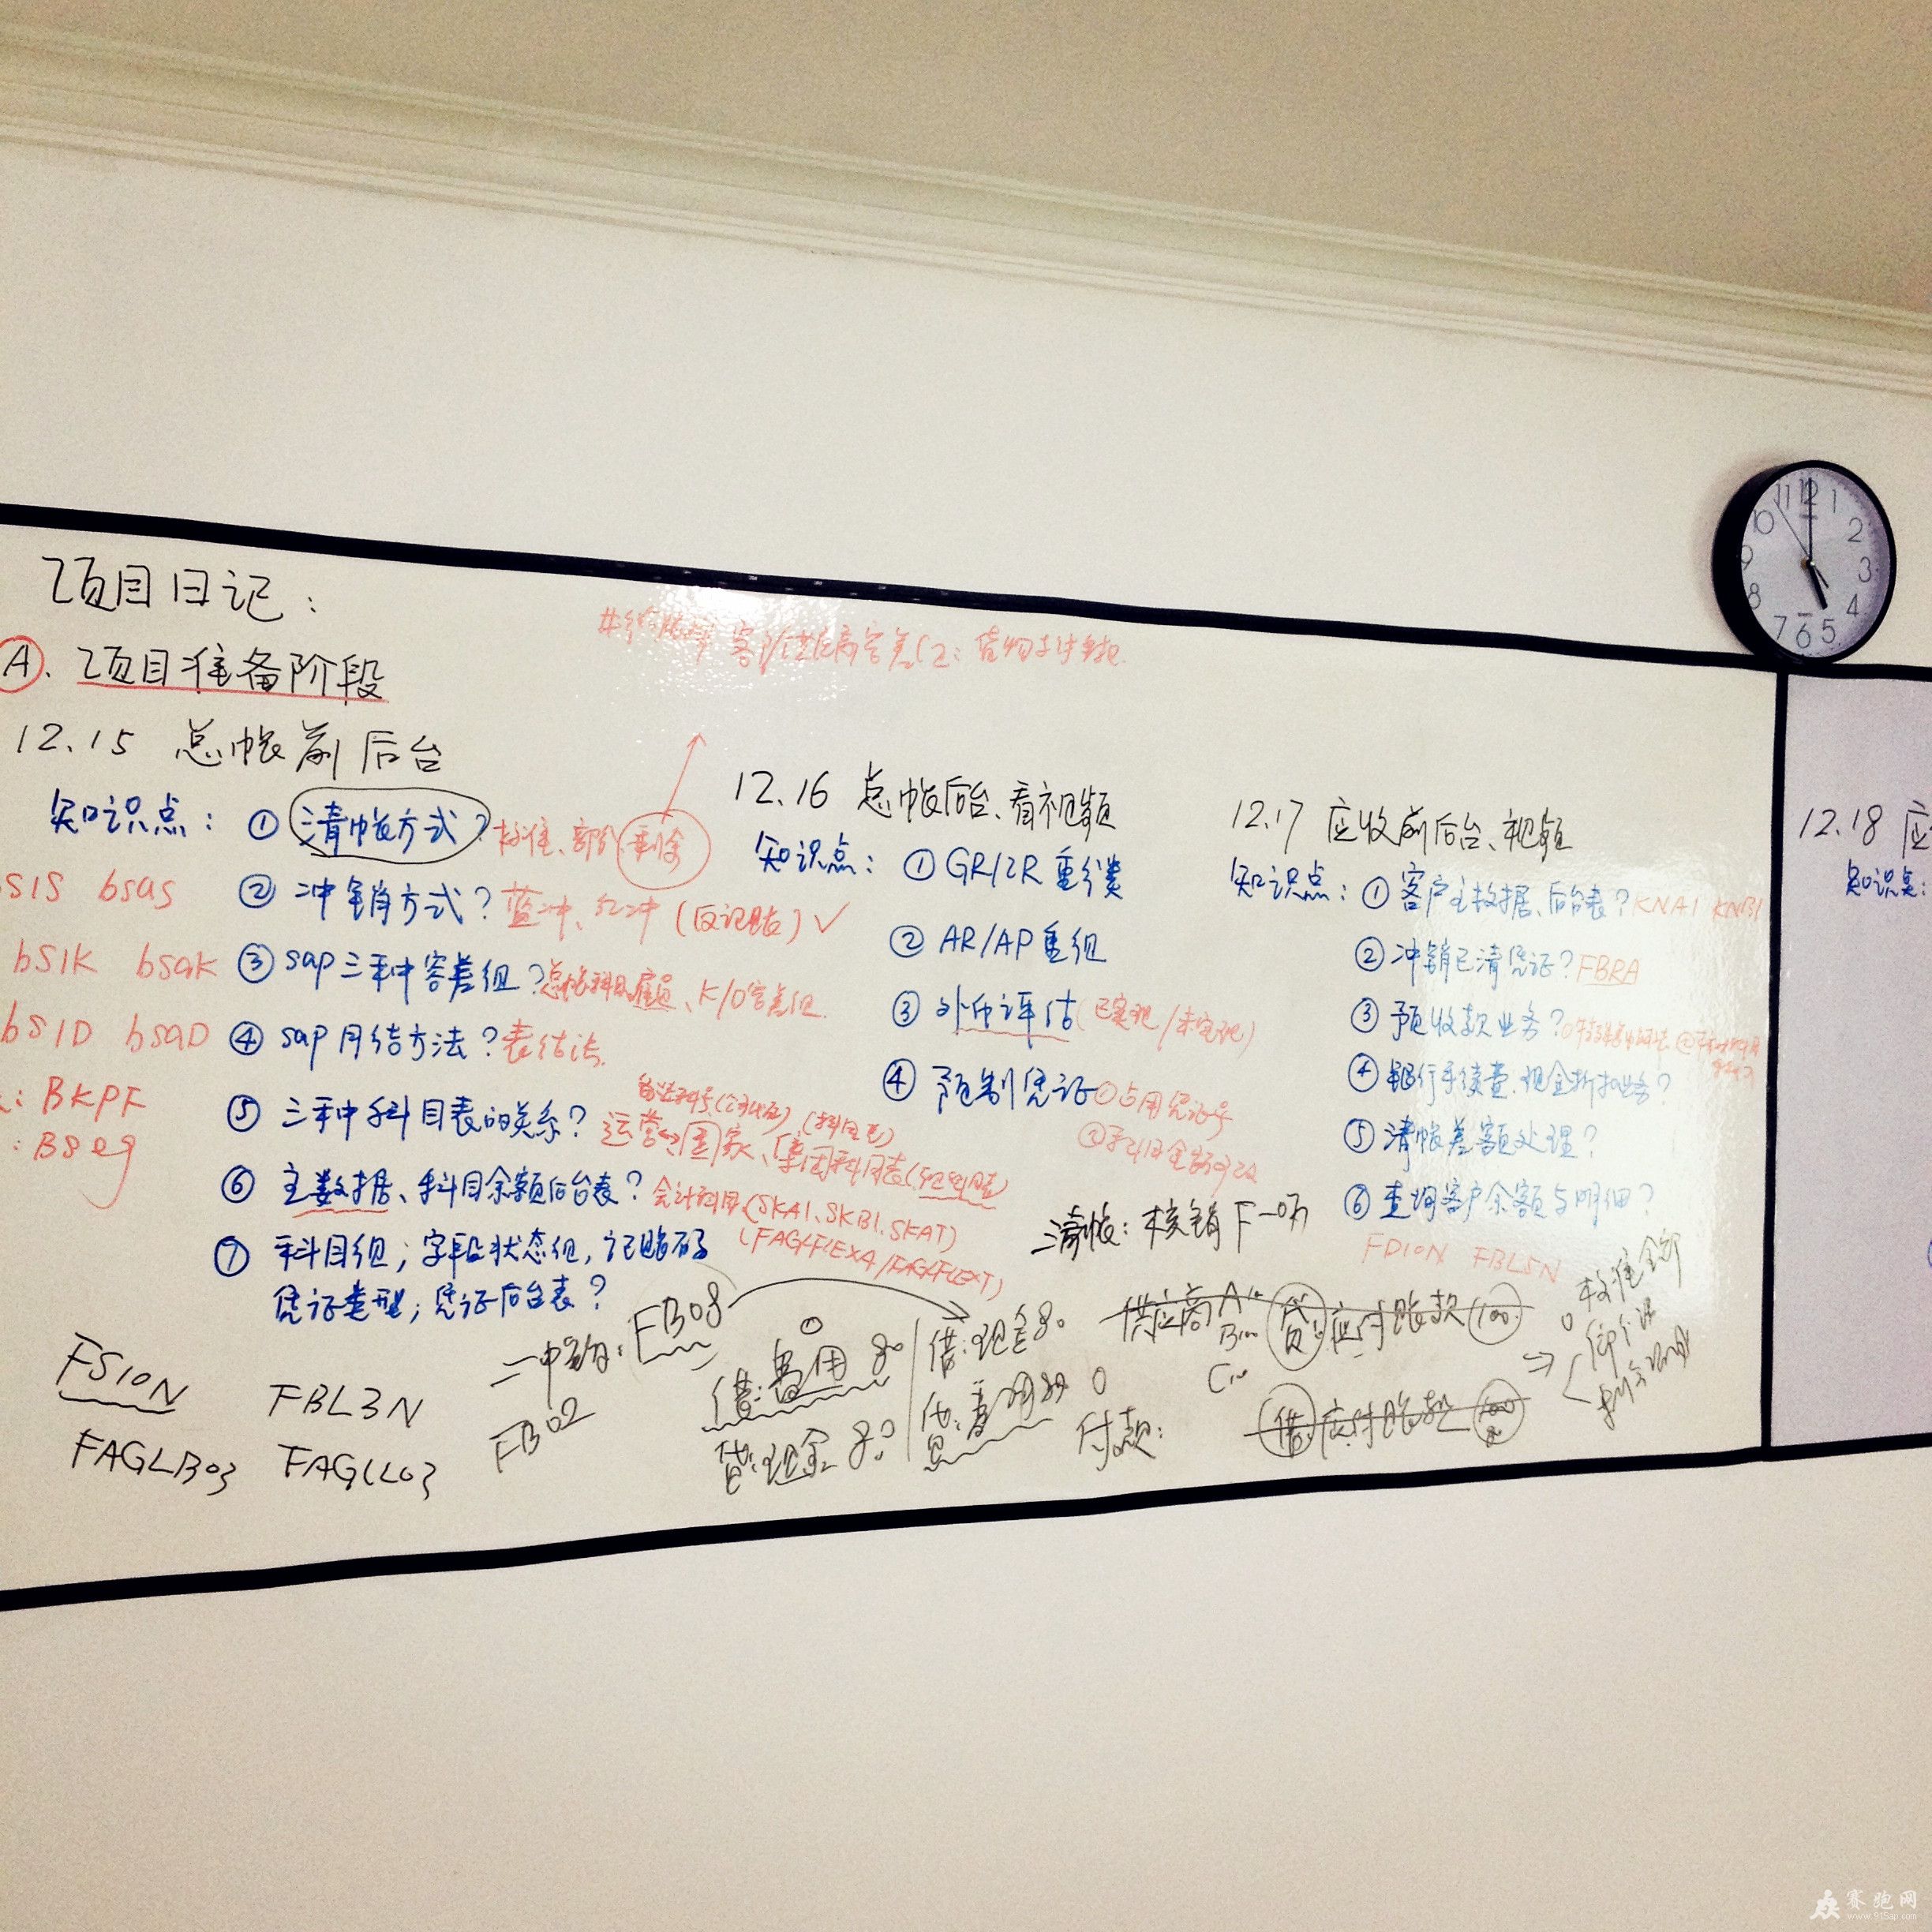 项目日记：
A. 项目准备阶段
12.15 总帐前后台
知识点： ① 清帐方式？标准、部分、剩余
② 冲销方式？蓝冲、红冲（反记账）✓
bsas
③ sap三种容差组？总帐科目、雇员、K/D容差组
bSIK bsak
④ sap月结方法？表结法
bSID bsaD
⑤ 三种科目表的关系？运营、国家、集团科目表
: BKPF
: BSeg
⑥ 主数据、科目余额后台表？会计科目(SKA1、SKB1、SKAT)
(FAGLFLEXA/FAGLFLEXT)
⑦ 科目组；字段状态组，记账码
凭证类型；凭证后台表？
FS10N FBL3N
FAGLB03 FAGLL03
FB08
FB02
借：费用 80
贷：现金 80
借：现金 80
贷：费用 80
12.16 总帐后台、看视频
知识点： ① GR/IR 重分类
② AR/AP 重组
③ 外币评估（已实现/未实现）
④ 预制凭证 ①占用凭证号
清帐：核销
供应商 A
B
C
贷 应付账款 100
付款：
借 应付账款 100
12.17 应收前后台、视频
知识点： ① 客户主数据、后台表？KNA1 KNB1
② 冲销已清凭证？FBRA
③ 预收款业务？
④ 银行手续费、现金折扣业务？
⑤ 清帐差额处理？
⑥ 查询客户余额与明细？
FD10N FBL5N
12.18 应
知识点：
11 12 1
10 2
9 3
8 4
7 6 5
赛跑网
www.91sap.com